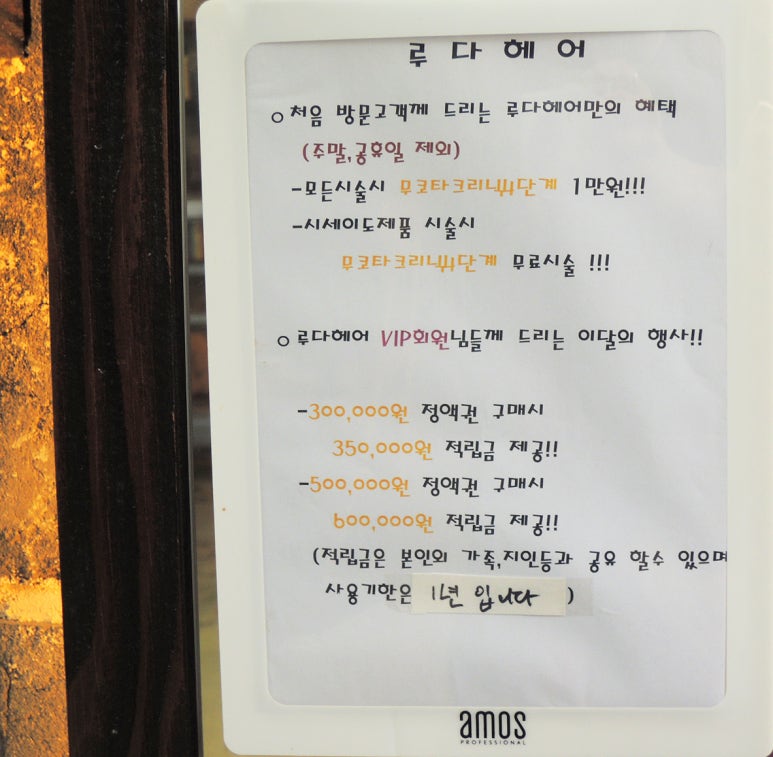 루다헤어
○처음 방문고객께 드리는 루다헤어만의 혜택
(주말,공휴일 제외)
-모든시술시 무코타크리닉4단계 1만원!!!
-시세이도제품 시술시
무코타크리닉4단계 무료시술 !!!
○루다헤어 VIP회원님들께 드리는 이달의 행사!!
-300,000원 정액권 구매시
350,000원 적립금 제공!!
-500,000원 정액권 구매시
600,000원 적립금 제공!!
(적립금은 본인외 가족,지인등과 공유 할수 있으며
사용기한은 1년 입니다 )
amos
PROFESSIONAL